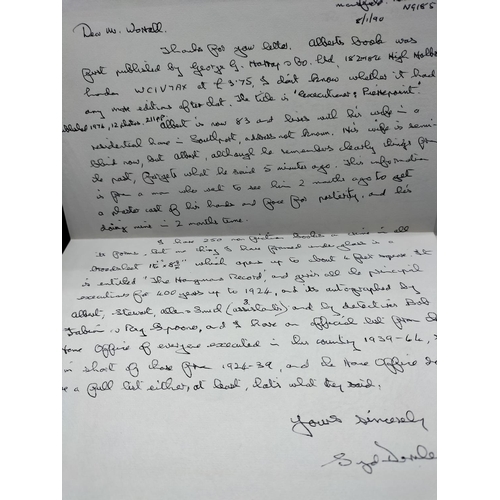 Mansfield,
NG18 5
8/1/90
Dear Mr. Worrall,
Thanks for your letter. Alberts book was
first published by George G. Harrap & Co. Ltd, 182-184 High Holb
London WC1V 7AX at £3.75, I don't know whether it had
any more editions after that. The title is "Executioner Pierrepoint".
published 1974, 12 plates, 211pp.
Albert is now 83 and lives with his wife in a
residential home in Southport, address not known. His wife is semi-
blind now, but Albert, although he remembers clearly things from
the past, forgets what he said 5 minutes ago. This information
is from a man who went to see him 2 months ago to get
a plaster cast of his hands and face for posterity, and he's
doing mine in 2 months time.
I have 250 non fiction books on crime in all
its forms, but one thing I have framed under glass is a
broadsheet 15" x 8½" which opens up to about 4 feet square. It
is entitled "The Hangmans Record", and gives all the principal
executions for 400 years up to 1924, and its autographed by
Albert, Stewart, Allen & Smith (assistants) and by detectives Bob
Fabian & Ray Spoone, and I have an official list from the
Home Office of everyone executed in this country 1939-64,
in short of those from 1924-39, and the Home Office
a full list either, at least, that's what they said.
Yours Sincerely
Syd